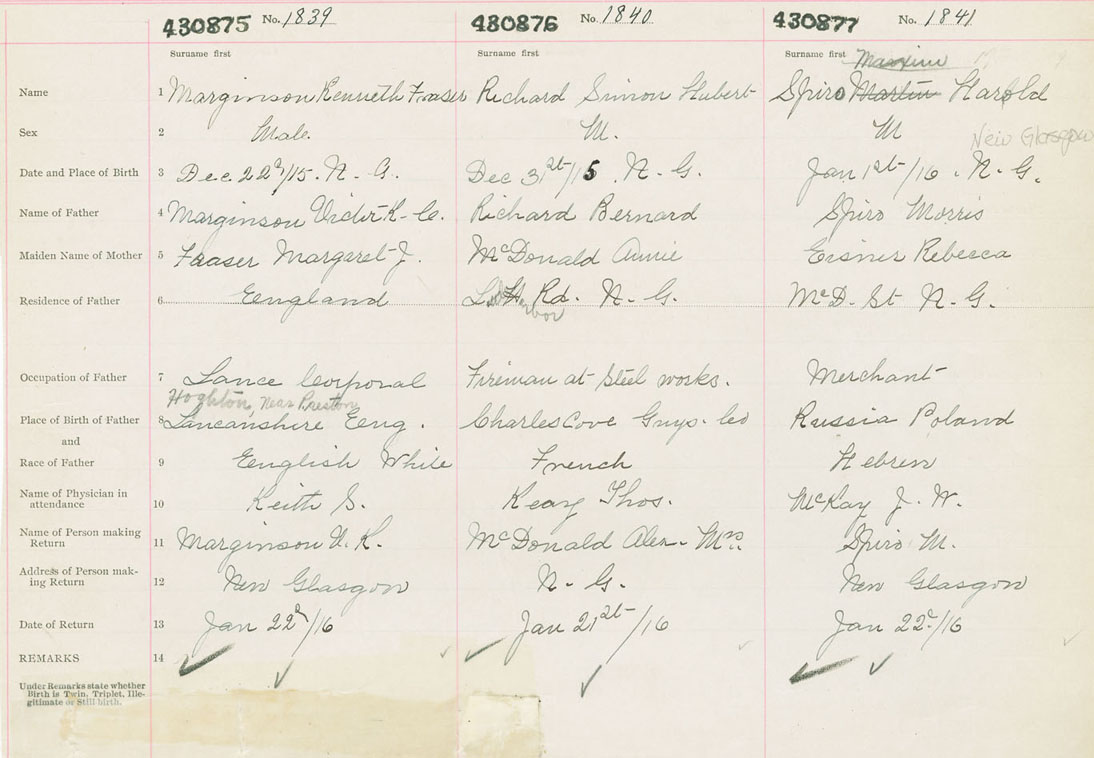 430875 No. 1839 430876 No. 1840 430877 No. 1841
Surname first Surname first Surname first Maxim
Name 1 Marginson Kenneth Fraser Richard Simon Hubert Spiro Martin Harold
Sex 2 Male. M. M New Glasgow
Date and Place of Birth 3 Dec. 22d/15. N. G. Dec 31st/15. N. G. Jan 1st/16. N. G.
Name of Father 4 Marginson Victor K- Richard Bernard Spiro Morris
Maiden Name of Mother 5 Fraser Margaret J. McDonald Annie Eisner Rebecca
Residence of Father 6 Eengland Rd. N. G. McD. St N. G.
Harbor
Occupation of Father 7 Lance Corporal Fireman at Steel works. Merchant
Hoghton, Near Preston
Place of Birth of Father 8 Lancanshire Eeng. Charles Cove Guys. Co Russia Poland
and
Race of Father 9 Eenglish White French Hebrew
Name of Physician in
attendance 10 Keith S. Keay Thos. McKay J. W.
Name of Person making
Return 11 Marginson V. K. McDonald Alex. Mrs. Spiro M.
Address of Person mak-
ing Return 12 New Glasgow N. G. New Glasgow
Date of Return 13 Jan 22d/16 Jan 21st/16 Jan 22d/16
REMARKS 14
Under Remarks state whether
Birth is Twin, Triplet, Ille-
gitimate or Still-birth.